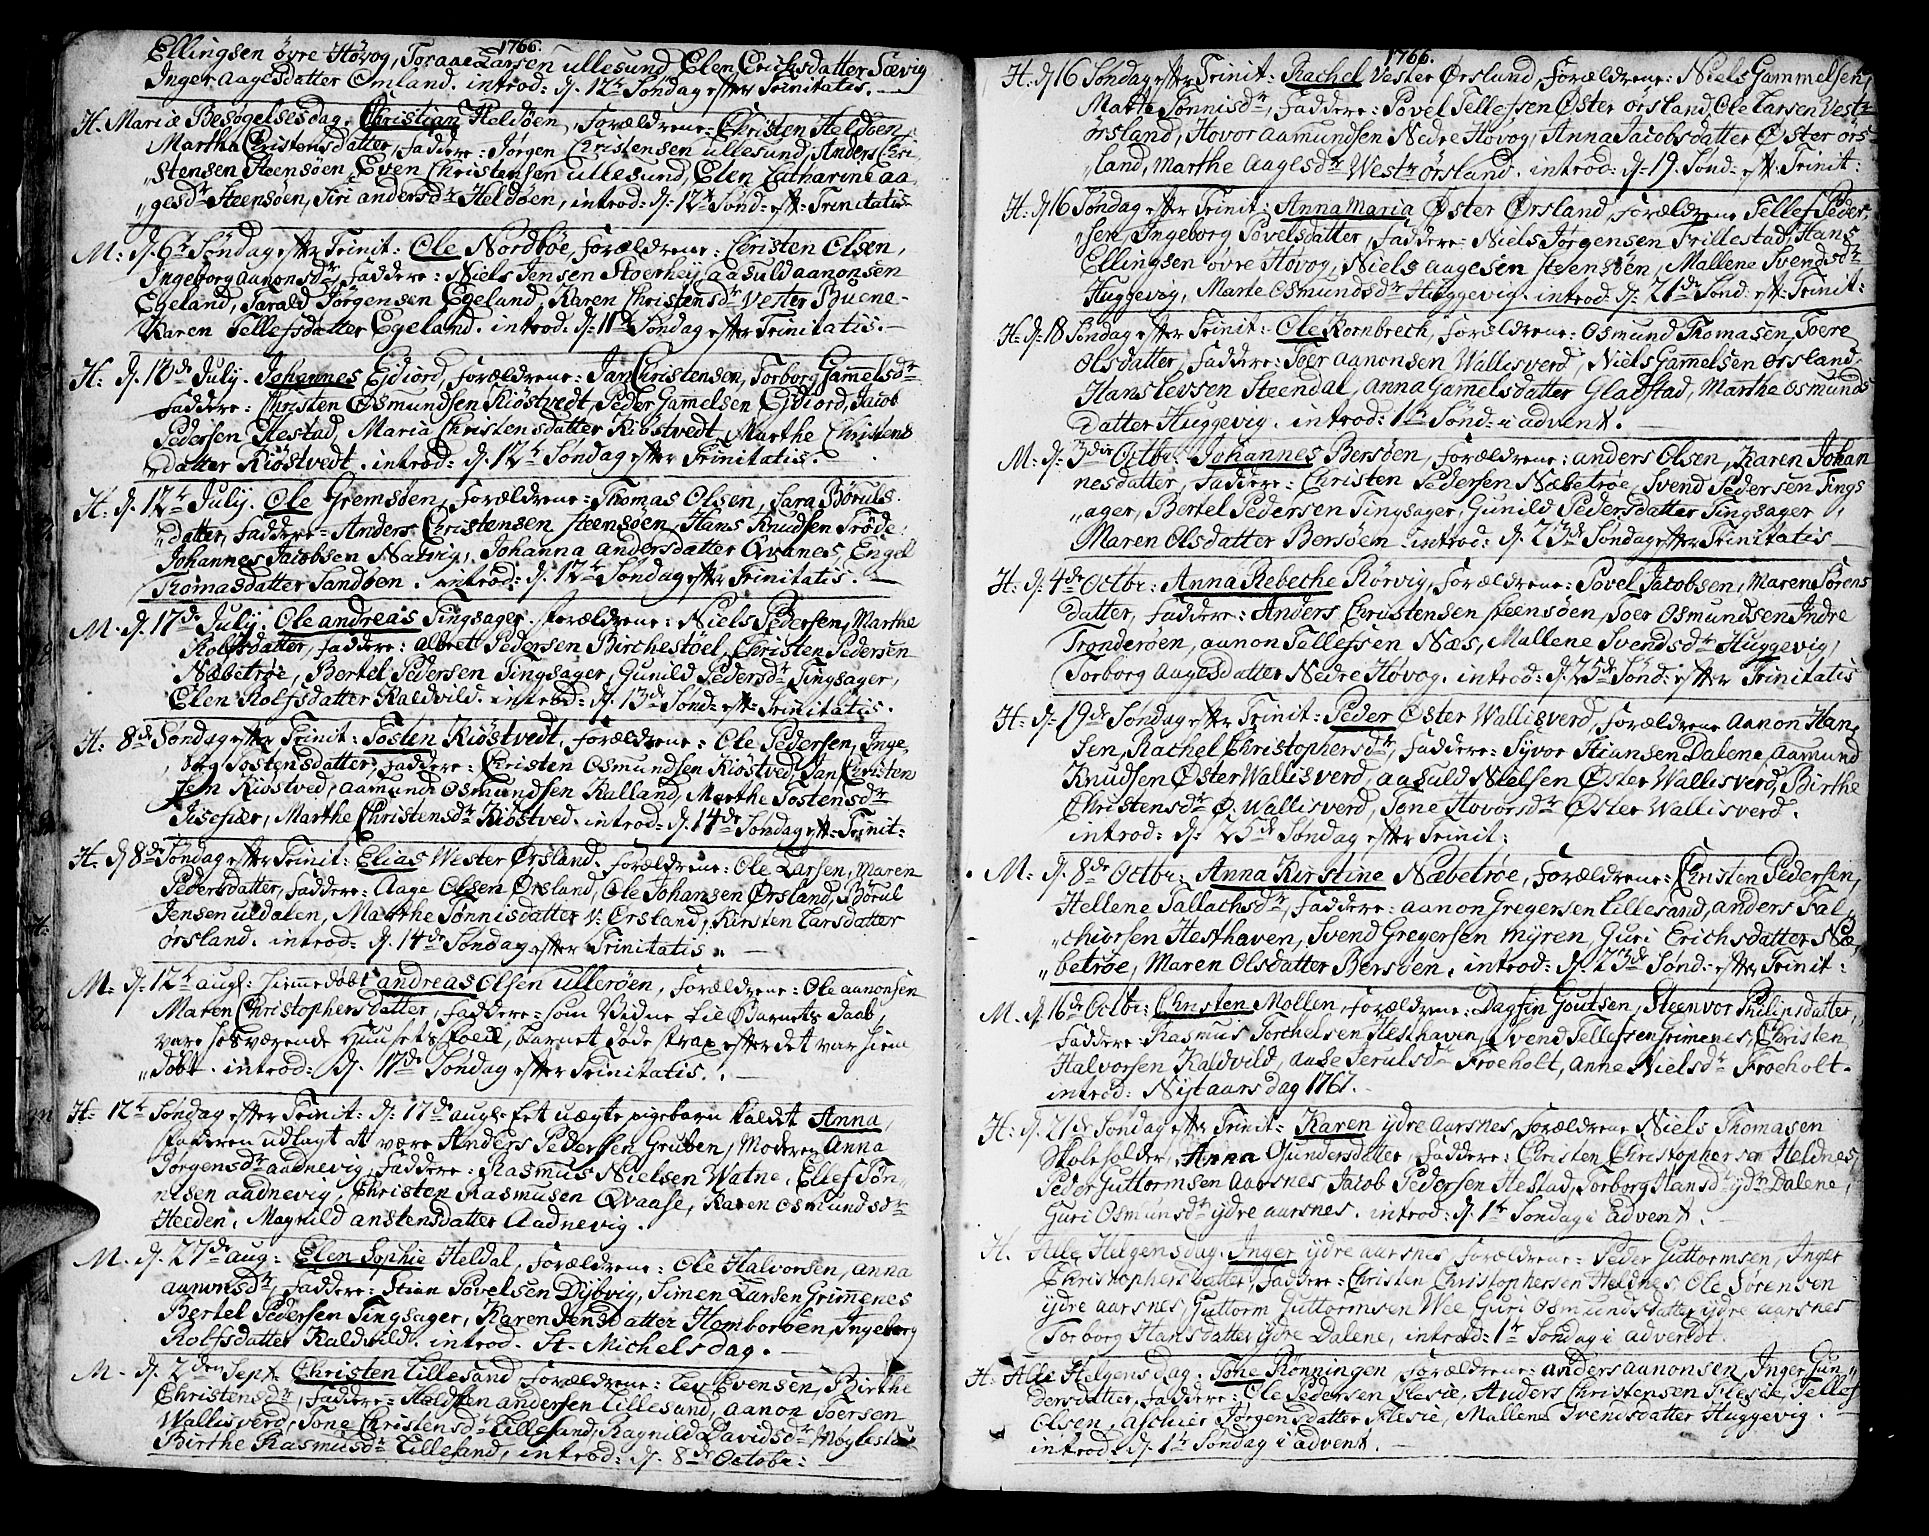 1766.
Ellingsen övre Hövog, Torane Larsen ullesund Elen Erichsdatter Sævig
Inger Aagesdatter Omland. introd: d. 12te Söndag efter Trinitatis.
H. Mariæ Besøgelsesdag. Christian Heldöen, Forældrene: Christen Heldöen,
Martha Christensdatter, Faddere: Jörgen Christensen ullesund, Anders Chri-
„stensen Steensöen, Even Christensen ullesund, Elen Catharine Aa-
„gesdr Steensöen, Siri andersdr Heldöen, introd: d. 12te Sönd: eft: Trinitatis
M: d. 6te Söndag efter Trinit: Ole Nordböe, Forældrene: Christen Olsen,
Ingeborg Aanonsdr, Faddere: Niels Jensen Stoerhey, aasuld aanonsen
Egeland, Tarald Jörgensen Egeland, Karen Christensdr Vester Buene-
Karen Tellefsdatter Egeland. introd: d. 11te Söndag efter Trinitatis.
H. d. 10de July. Johannes Ediord, Forældrene: Jan Christensen, Torborg Gamelsdr
Faddere: Christen Osmundsen Kiöstvedt, Peder Gamelsen Ediord, Jacob
Pedersen Hestad, Maria Christensdatter Kiöstvedt, Marthe Christens
datter Kiöstvedt. introd: d. 12te Söndag efter Trinitatis.
H. d. 12te July. Ole Gremsöen, Forældrene: Thomas Olsen, Sara Böruls
„datter, Faddere: Anders Christensen Steensöen, Hans Knudsen Tröde,
Johannes Jacobsen Natvig, Johanna andersdatter Qvanes, Engel
Thomasdatter Sandöen. introd: d. 12te Söndag efter Trinitatis.
M. d. 17de July. Ole andreas Tingsager. Forældrene: Niels Pedersen, Marthe
Rolfsdatter, Faddere: Albret Pedersen Birchestöel, Christen Pedersen
Næbetröe, Bertel Pedersen Tingsager, Gunild Pedersdr Tingsager,
Elen Rolfsdatter Kaldvild. introd: d. 13de Sönd: eft: Trinitatis.
H. 8de Söndag efter Trinit: Tosten Kiöstvedt, Forældrene: Ole Pedersen, Inge-
„borg Tostensdatter, Faddere: Christen Osmundsen Kiöstved, Jan Christen
sen Kiöstved, Aamund Osmundsen Kalland, Marthe Tostensdr
Tisefiær, Marthe Christensdr Kiöstved. introd: d. 14de Söndag eft: Trinit:
H. d 8de Söndag efter Trinit: Elias Wester Örsland. Forældrene: Ole Larsen, Maren
Pedersdatter, Faddere: Aage Olsen Örsland, Ole Johansen Örsland, Börul
Jensen uldalen, Marthe Tönnisdatter V: Örsland, Kirsten Larsdatter
örsland. introd: d. 14de Söndag efter Trinitatis.
M: d. 12te aug: hiemedöbt andreas Olsen ulleröen, Forældrene: Ole aanonsen
Maren Christophersdatter, Faddere: som Vidne til Barnets Daab,
vare hosværende Huusets Folck, barnet döde strax efter det var hiem
„döbt. introd: d. 17de Söndag efter Trinitatis.
H: 12te Söndag efter Trinit: d: 17de aug: Et uægte pigebarn kaldet Anna,
faderen udlagt at være Anders Pedersen Gruben, Moderen Anna
Jörgensdr aadnevig, Faddere: Rasmus Nielsen Watne, Ellef Tön-
nisen aadnevig, Christen Rasmusen Qvaase, Karen Osmundsdr
Heeden, Magnild anstensdatter Aadnevig.
M. d. 27de aug: Elen Sophie Heldal, Forældrene: Ole Halvorsen, anna
aanonsdr, Faddere: Stian Povelsen Dybvig, Simen Larsen Grimenes
Bertel Pedersen Tingsager, Karen Jensdatter Homboröen, Ingeborg
Rolfsdatter Kaldvild. introd. St. Michelsdag.
M. d. 2den Sept. Christen Lillesand Forældrene: Lev Evensen, Birthe
Christensdr, Faddere: Haldsten andersen Lillesand, aanon Toersen
Wallisverd, Tone Christensdr Lillesand, Ragnild Davidsdr, Möglestu
Birthe Rasmusdr Lillesand, introd: d. 8de Octobr:
1766.
H. d 16 Söndag efter Trinit: Rachel Vester Örsland, Forældrene: Niels Gammelsen,
Marte Tönnisdr, Faddere: Povel Tellefsen Öster örsland, Ole Larsen Vestr
örsland, Hovor Aamundsen Nedre Hovog, Anna Jacobsdatter Öster örs-
„land, Marthe Aagesdr Westr örsland. introd: d. 19. Sönd: eft: Trinit:
H: d 16 Söndag efter Trinit: Anna Maria Öster Örsland, Forældrene Tellef Peder-
„sen, Ingeborg Povelsdatter, Faddere: Niels Jörgensen Trillestad, Hans
Ellingsen övre Hovog, Niels Aagesen Steensöen, Mallene Svendsdr
Huggevig, Marte Osmundsdr Huggevig. introd: d. 21de Sönd: eft: Trinit:
H: d: 18 Söndag efter Trinit: Ole Kornbrech, Forældrene: Osmund Thomasen, Toere
Olsdatter, Faddere: Toer Aanonsen Wallisverd, Niels Gamelsen örsland,
Hans Levsen Steendal, Anna Gamelsdatter Gladstad, Marthe Osmunds
datter Huggevig. introd: 1te Sönd: i advent.
M: d: 3die Octbr: Johannes Bersöen, Forældrene: anders Olsen, Karen Johan
nesdatter, Faddere: Christen Pedersen Næbetröe, Svend Pedersen Tings
„ager, Bertel Pedersen Tingsager, Gunild Pedersdatter Tingsager,
Maren Olsdatter Bersöen introd: d. 23de Söndag efter Trinitatis
H: d. 4de Octbr: Anna Rebeche Rörvig, Forældrene: Povel Jacobsen, Maren Sörens
datter, Faddere: Anders Christensen Steensöen, Toer Osmundsen Indre
Tronderöen, aanon Tellefsen Næs, Mallene Svendsdr Huggevig,
Torborg Aagesdatter Nedre Hövog. introd: d. 25de Sönd: efter Trinitatis
H: d. 19de Söndag efter Trinit: Peder Öster Wallisverd, Forældrene Aanon Han-
sen, Rachel Christophersdr, Faddere: Syvor Stiansen Dalene, Aamund
Knudsen Öster Wallisverd, aasuld Nielsen Öster Wallisverd, Birthe
Christensdr Ö. Wallisverd, Tone Hovorsdr Öster Wallisverd.
introd: d. 25de Söndag efter Trinit:
M: d. 8de Octbr: Anna Kirstine Næbetröe, Forældrene: Christen Pedersen,
Hellene Tallachsdr, Faddere: aanon Gregersen Lillesand, anders Fal-
„chiorsen Hesthaven, Svend Gregersen myren, Guri Erichsdatter Næ-
„betröe, Maren Olsdatter Bersöen, introd: d. 23de Sönd: efter Trinit:
M. d. 16de Octbr: Christen Mollen, Forældrene: Dagfin Goutsen, Steenvor Philipsdatter,
Faddere: Rasmus Torchelsen Hesthaven, Svend Tellefsen Grimenes, Christen
Halvorsen Kaldvild, Aase Jerulsdr Froeholt, Anne Nielsdr Froeholt.
introd: Nyt aars dag 1767.
H: d. 21de Söndag efter Trinit: Karen ydre Aarsnes, Forældrene Niels Thomasen
Skoleholder, Anna Gundersdatter, Faddere: Christen Christophersen Heldnes,
Peder Guttormsen Aarsnes, Jacob Pedersen Hestad, Torborg Hansdr ydr Dalene,
Guri Osmunsdr ydre aarsnes. introd: d. 1te Söndag i advent.
H. Alle Helgensdag. Inger ydre aarsnes, Forældrene: Peder Guttormsen, Inger
Christophersdatter, Faddere: Christen Christophersen Heldnes, Ole Sörensen
ydre aarsnes, Guttorm Guttormsen Wee Guri Osmundsdatter ydre aarsnes
Torborg Hansdatter ydre Dalene, introd: 1te Söndag i advendt.
H: Alle Helgensdag. Tone Rönningen, Forældrene: anders aanonsen, Inger Gun-
dersdatter, Faddere: Ole Pedersen Flesie, Anders Christensen Flesie, Tellef
Olsen, Aschier Jörgensdatter Flesie, Mallene Svendsdatter Huggevig.
introd. d. 1te Söndag i advent.